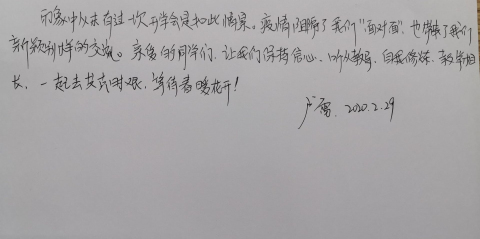 印象中从未有过一次开学会是如此情景。疫情阻隔了我们“面对面”，也催生了我们
新颖别样的交流。亲爱的同学们，让我们保持信心、听从教导、自我修炼、教学相
长，一起去共克时艰，等待春暖花开！
卢雷 2020.2.29